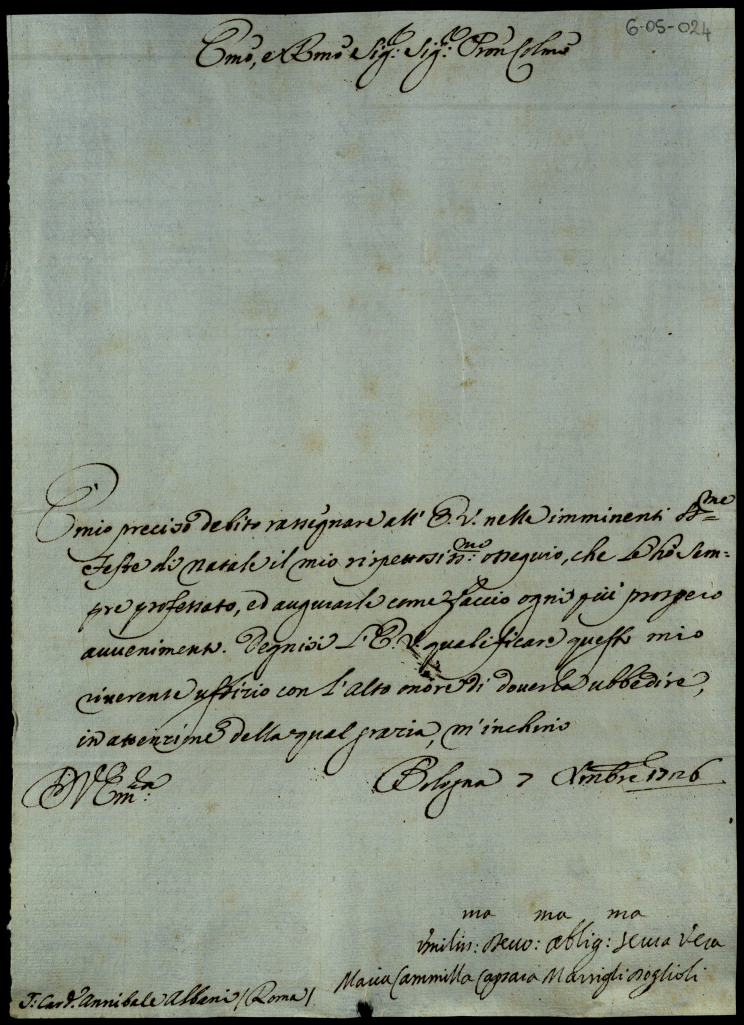 6-05-024
Emo, e Rmo Sig:r Sig:r Pron Colmo
È mio preciso debito rassegnare all' E. V. nelle imminenti SS:me
Feste di Natale il mio rispettosiss:mo ossequio, che Le hò sem=
pre professato, ed augurarle come faccio ogni più prospero
avvenimento. Degnisi L' E. V. qualificare questo mio
riverente uffizio con l' alto onore di doverla ubbedire,
in attenzione della qual grazia, m' inchino
D V Em:za
Bologna 7 Xmbre 1726
Umilis:ma Devo:ma Oblig:ma Serva Vera
Maria Cammilla Caprara Marsigli
S: Card: Annibale Albani / Roma /